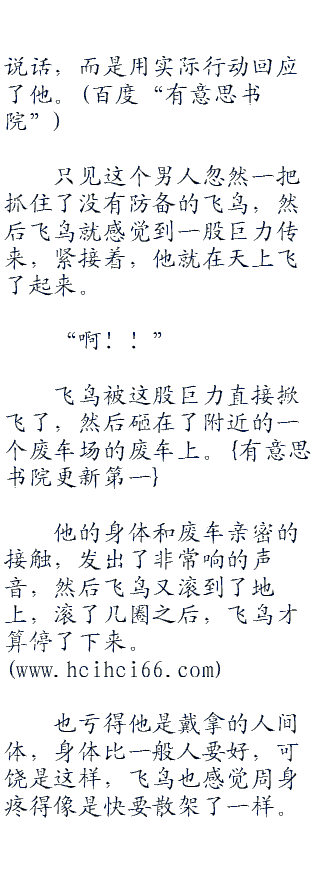 说话，而是用实际行动回应
了他。(百度“有意思书
院”)
只见这个男人忽然一把
抓住了没有防备的飞鸟，然
后飞鸟就感觉到一股巨力传
来，紧接着，他就在天上飞
了起来。
“啊！！”
飞鸟被这股巨力直接掀
飞了，然后砸在了附近的一
个废车场的废车上。{有意思
书院更新第一}
他的身体和废车亲密的
接触，发出了非常响的声
音，然后飞鸟又滚到了地
上，滚了几圈之后，飞鸟才
算停了下来。
(www.hcihci66.com)
也亏得他是戴拿的人间
体，身体比一般人要好，可
饶是这样，飞鸟也感觉周身
疼得像是快要散架了一样。